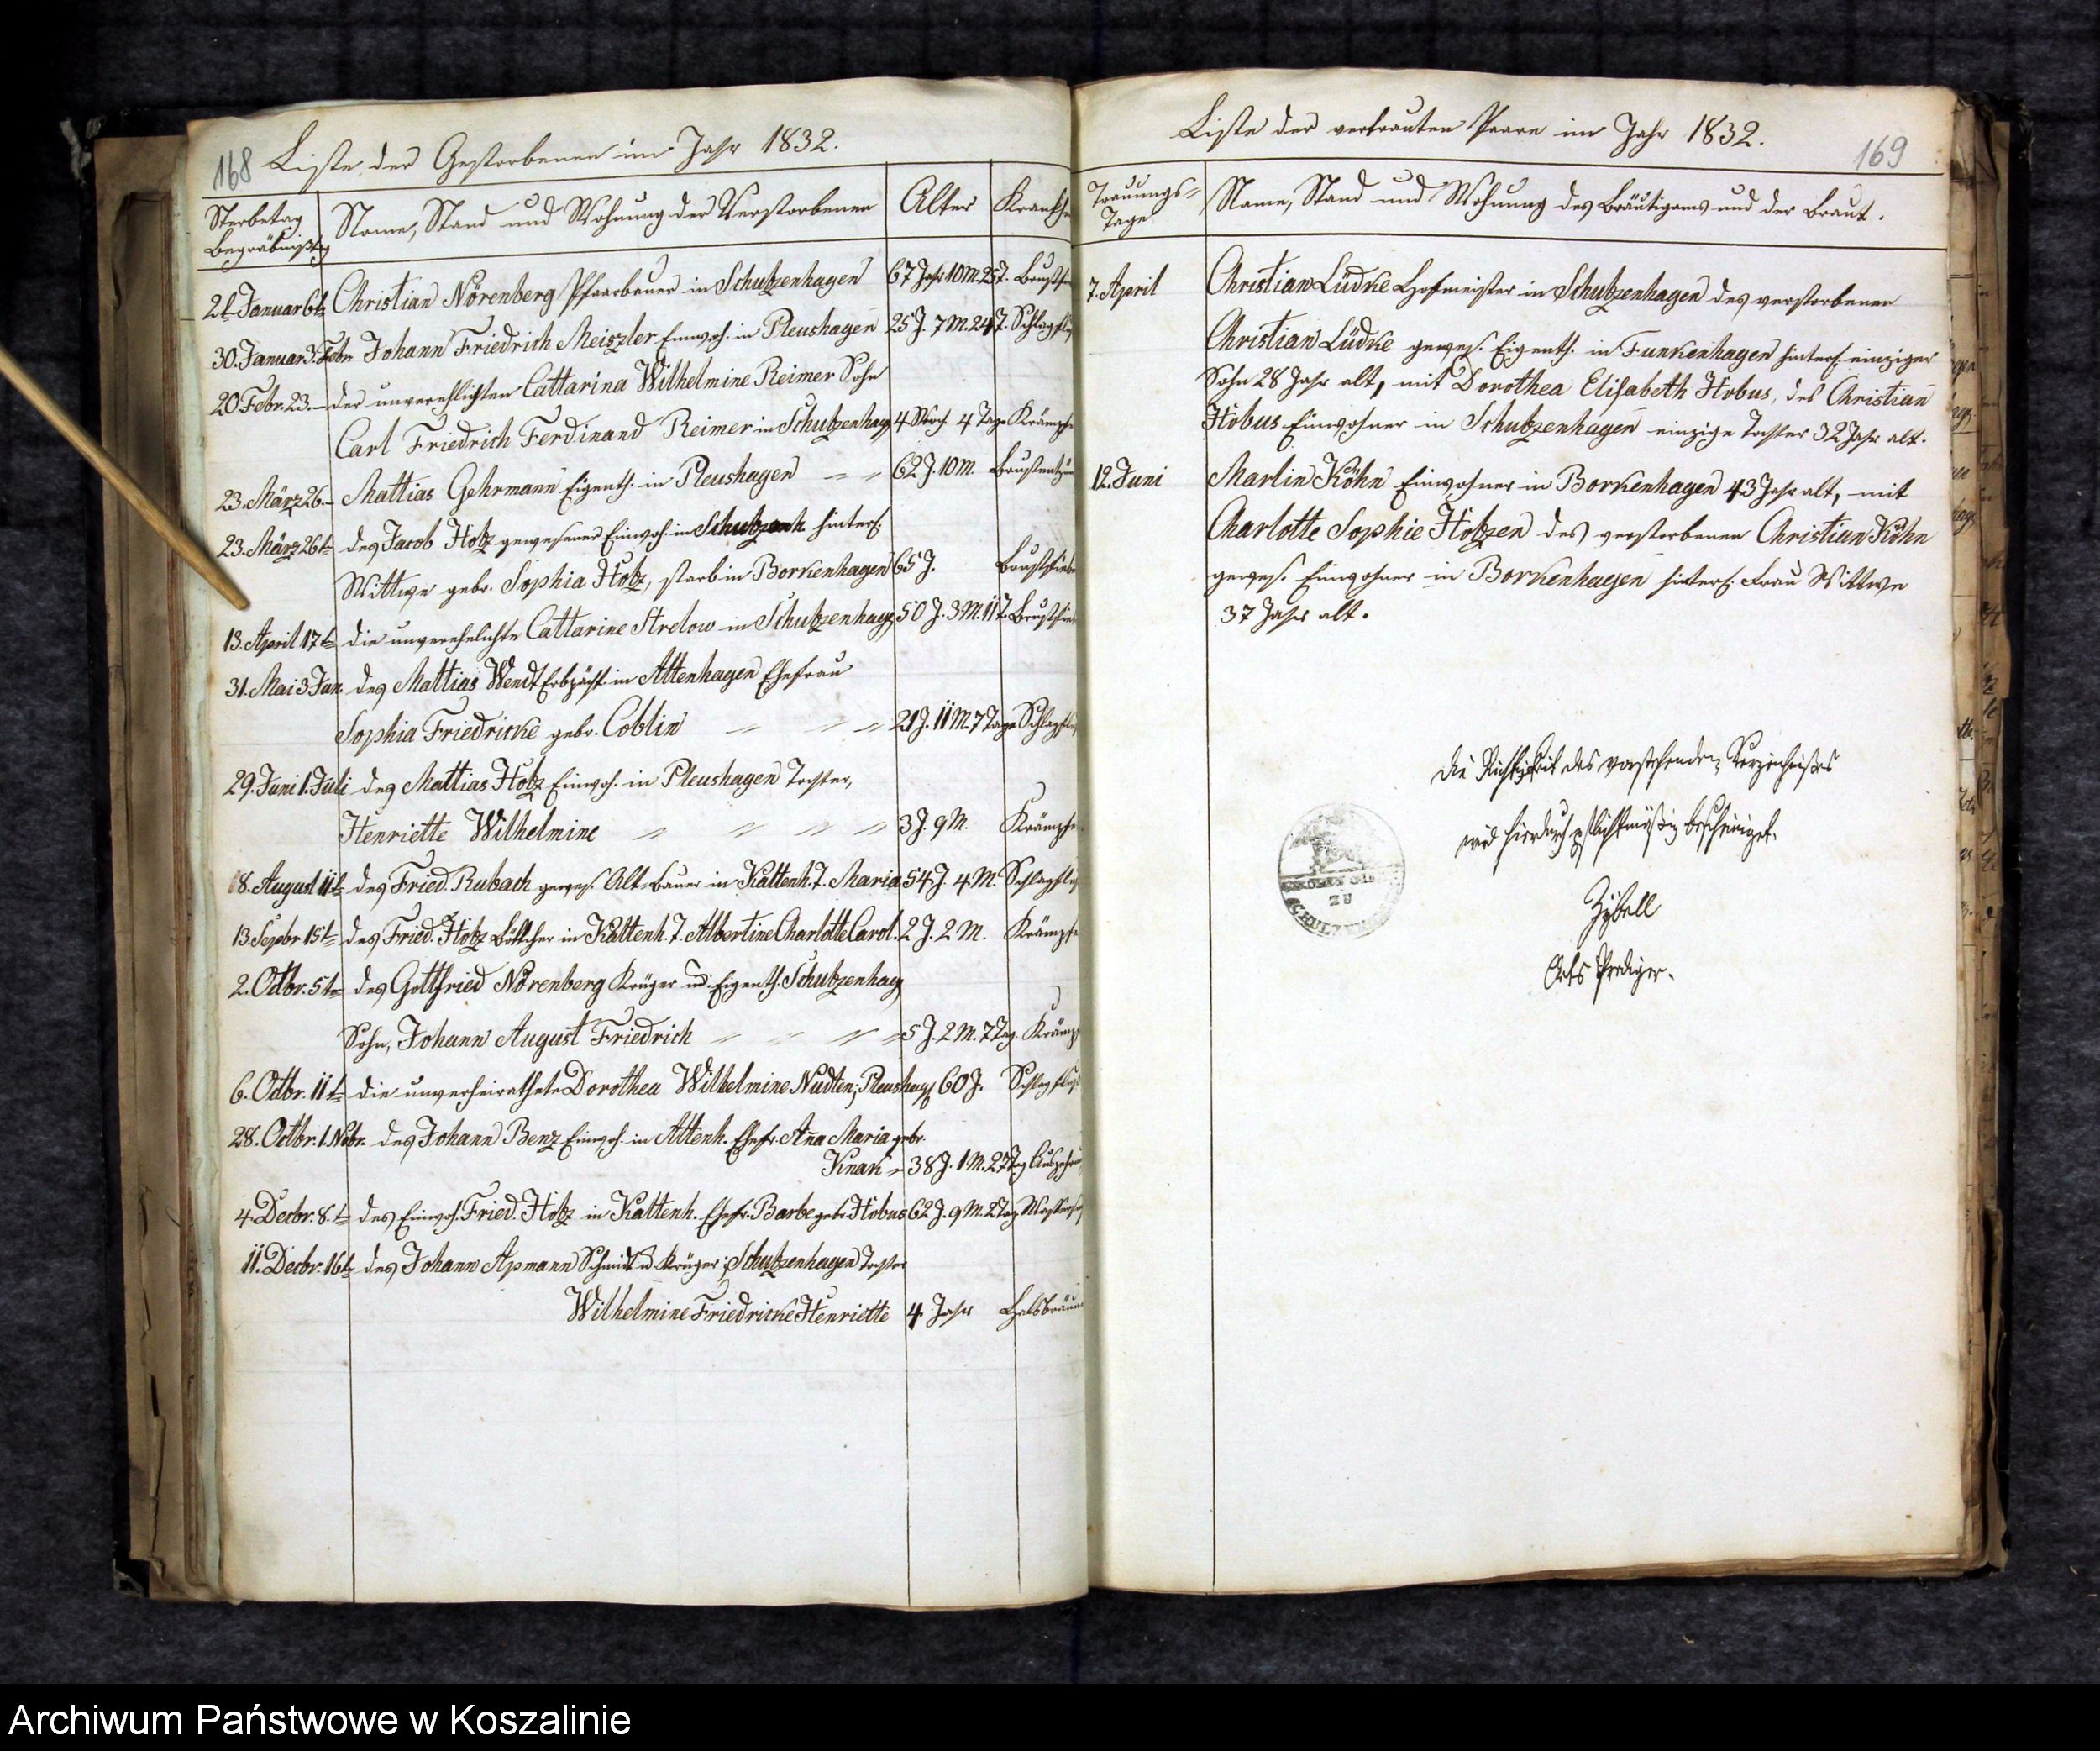 168
Liste der Gestorbenen im Jahr 1832.
Sterbetag
Begräbnißtg
Name, Stand und Wohnung der Verstorbenen
Alter
Krankh
2t Januar 6t Christian Nörenberg Pfaarbauer in Schulzenhagen 67 Jahr 10 M. 25 T. Brustfie
30. Januar 3. Febr Johann Friedrich Meiszler Einwoh. in Pleushagen 25 J. 7 M. 24 T. Schlagfl
20 Febr. 23.– der unverehlichten Cattarina Wilhelmine Reimer Sohn
Carl Friedrich Ferdinand Reimer in Schulzenhag 4 Woch 4 Tage Krämpfe
23. März 26.– Mattias Gehrmann Eigenth. in Pleushagen – – 62 J. 10 M. Brustentzün
23. März 26t des Jacob Holz gewesener Einwoh. in Schulzenh. hinterl.
Wittwe gebr. Sophia Holz, starb in Borkenhagen 65 J. Brustfiebe
13. April 17t die unverehelichte Cattarine Strelow in Schulzenhag 50 J. 3 M. 11 T. Brustfie
31. Mai 3 Jun. des Mattias Wendt Erbpächt. in Altenhagen Ehefrau
Sophia Friedricke gebr. Coblin 21 J. 11 M. 7 Tage Schlagflu
29. Juni 1. Juli des Mattias Holz Einwoh. in Pleushagen Tochter,
Henriette Wilhelmine 3 J. 9 M. Krämpfe
8. August 11t des Fried. Rubach gewes. Alt-Bauer in Kaltenh. T. Maria 54 J. 4 M. Schlagflu
13. Sepbr 15t des Fried. Holz Böttcher in Kaltenh. T. Albertine Charlotte Carol. 2 J. 2 M. Krämpfe
2. Octbr. 5t des Gottfried Nörenberg Krüger ud. Eigenth. Schulzenhag
Sohn, Johann August Friedrich 5 J. 2 M. 7 Tag. Krämpf
6. Octbr. 11t die unverheirathete Dorothea Wilhelmine Nudten, Pleushag 60 J. Schlagfluß
28. Octbr. 1. Nobr. des Johann Benz Einwoh. in Altenh. Ehefr. Anna Maria gebr.
Knak – 38 J. 1 M. 27 Tag Auszehrun
4 Decbr. 8.t des Einwoh. Fried. Holz in Kaltenh. Ehefr. Barbe gebr. Hobus 62 J. 9 M. 2 Tag Wassers
11. Decbr. 16t des Johann Apmann Schmidt u. Krüger i. Schulzenhagen Tochter
Wilhelmine Friedricke Henriette 4 Jahr Halsbräun
Liste der vertrauten Paare im Jahr 1832.
169
Trauungs-
Tage
Name, Stand und Wohnung des Bräutigams und der Braut.
7. April Christian Lüdke Hofmeister in Schulzenhagen des verstorbenen
Christian Lüdke gewes. Eigenth. in Funkenhagen hinterl. einziger
Sohn 28 Jahr alt, mit Dorothea Elisabeth Hobus, des Christian
Hobus Einwohner in Schulzenhagen einzige Tochter 32 Jahr alt.
12. Juni Martin Köhn Einwohner in Borkenhagen 43 Jahr alt, mit
Charlotte Sophie Holzen des verstorbenen Christian Köhn
gewes. Einwohner in Borkenhagen hinterl. Frau Wittwe
37 Jahr alt.
Die Richtigkeit des vorstehenden Verzeichnißes
wird hierdurch pflichtmäßig bescheiniget.
Zybell
Orts Prediger.
ZU
Archiwum Państwowe w Koszalinie